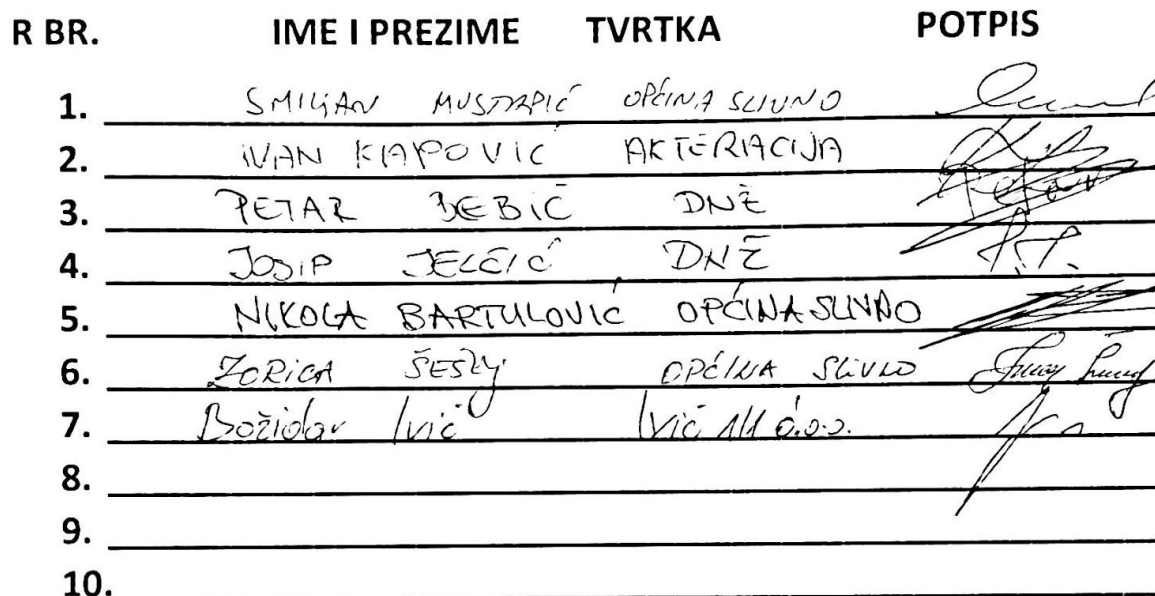 R BR. IME I PREZIME TVRTKA POTPIS
1. SMILJAN MUSTAPIĆ OPĆINA SLIVNO
2. IVAN KAPOVIĆ AKTERIACIJA
3. PETAR BEBIĆ DNŽ
4. JOSIP JELČIĆ DNŽ
5. NIKOLA BARTULOVIĆ OPĆINA SLIVNO
6. ZORICA OPĆINA SLIVNO
7. Božidar Ivić Ivić d.o.o.
8.
9.
10.